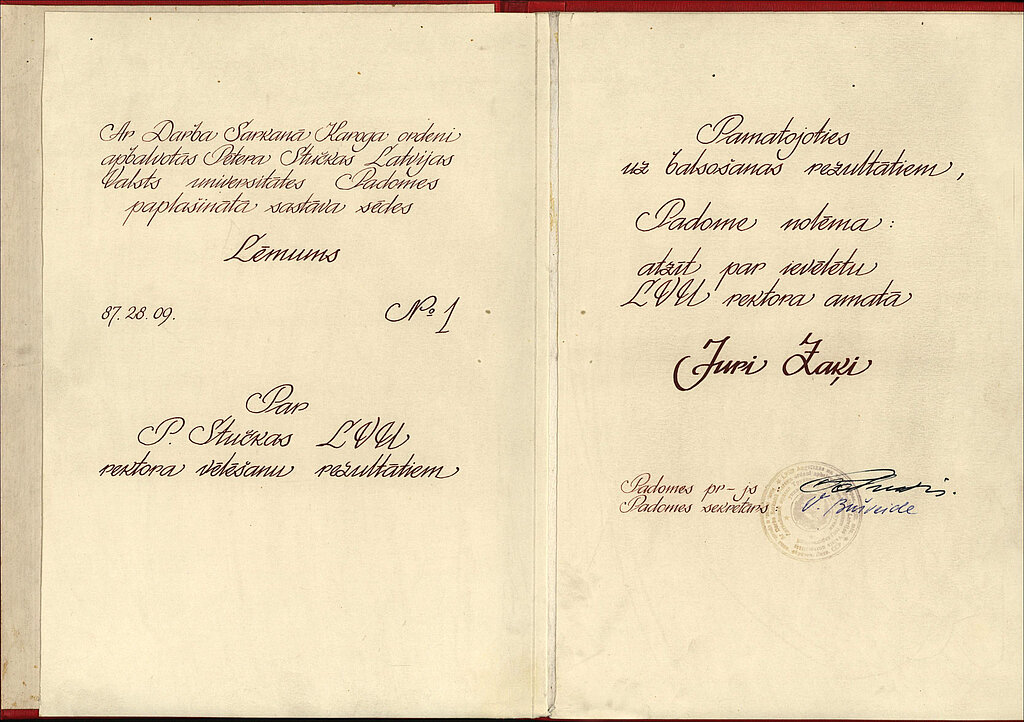 Ar Darba Sarkanā Karoga ordeni
apbalvotās Pētera Stučkas Latvijas
Valsts universitātes Padomes
paplašinātā sastāva sēdes
Lēmums
87. 28. 09.
№ 1
Par
P. Stučkas LVU
rektora vēlēšanu rezultātiem
Pamatojoties
uz balsošanas rezultātiem,
Padome nolēma:
atzīt par ievēlētu
LVU rektora amatā
Juri Zaķi
Padomes pr-js :
Padomes sekretārs :